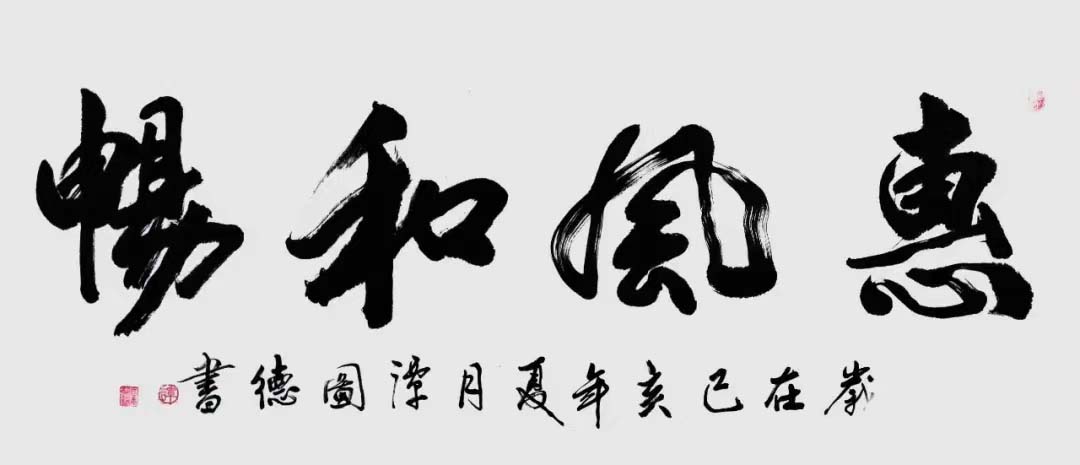 惠風和暢
歲在己亥年夏月譚圖德書